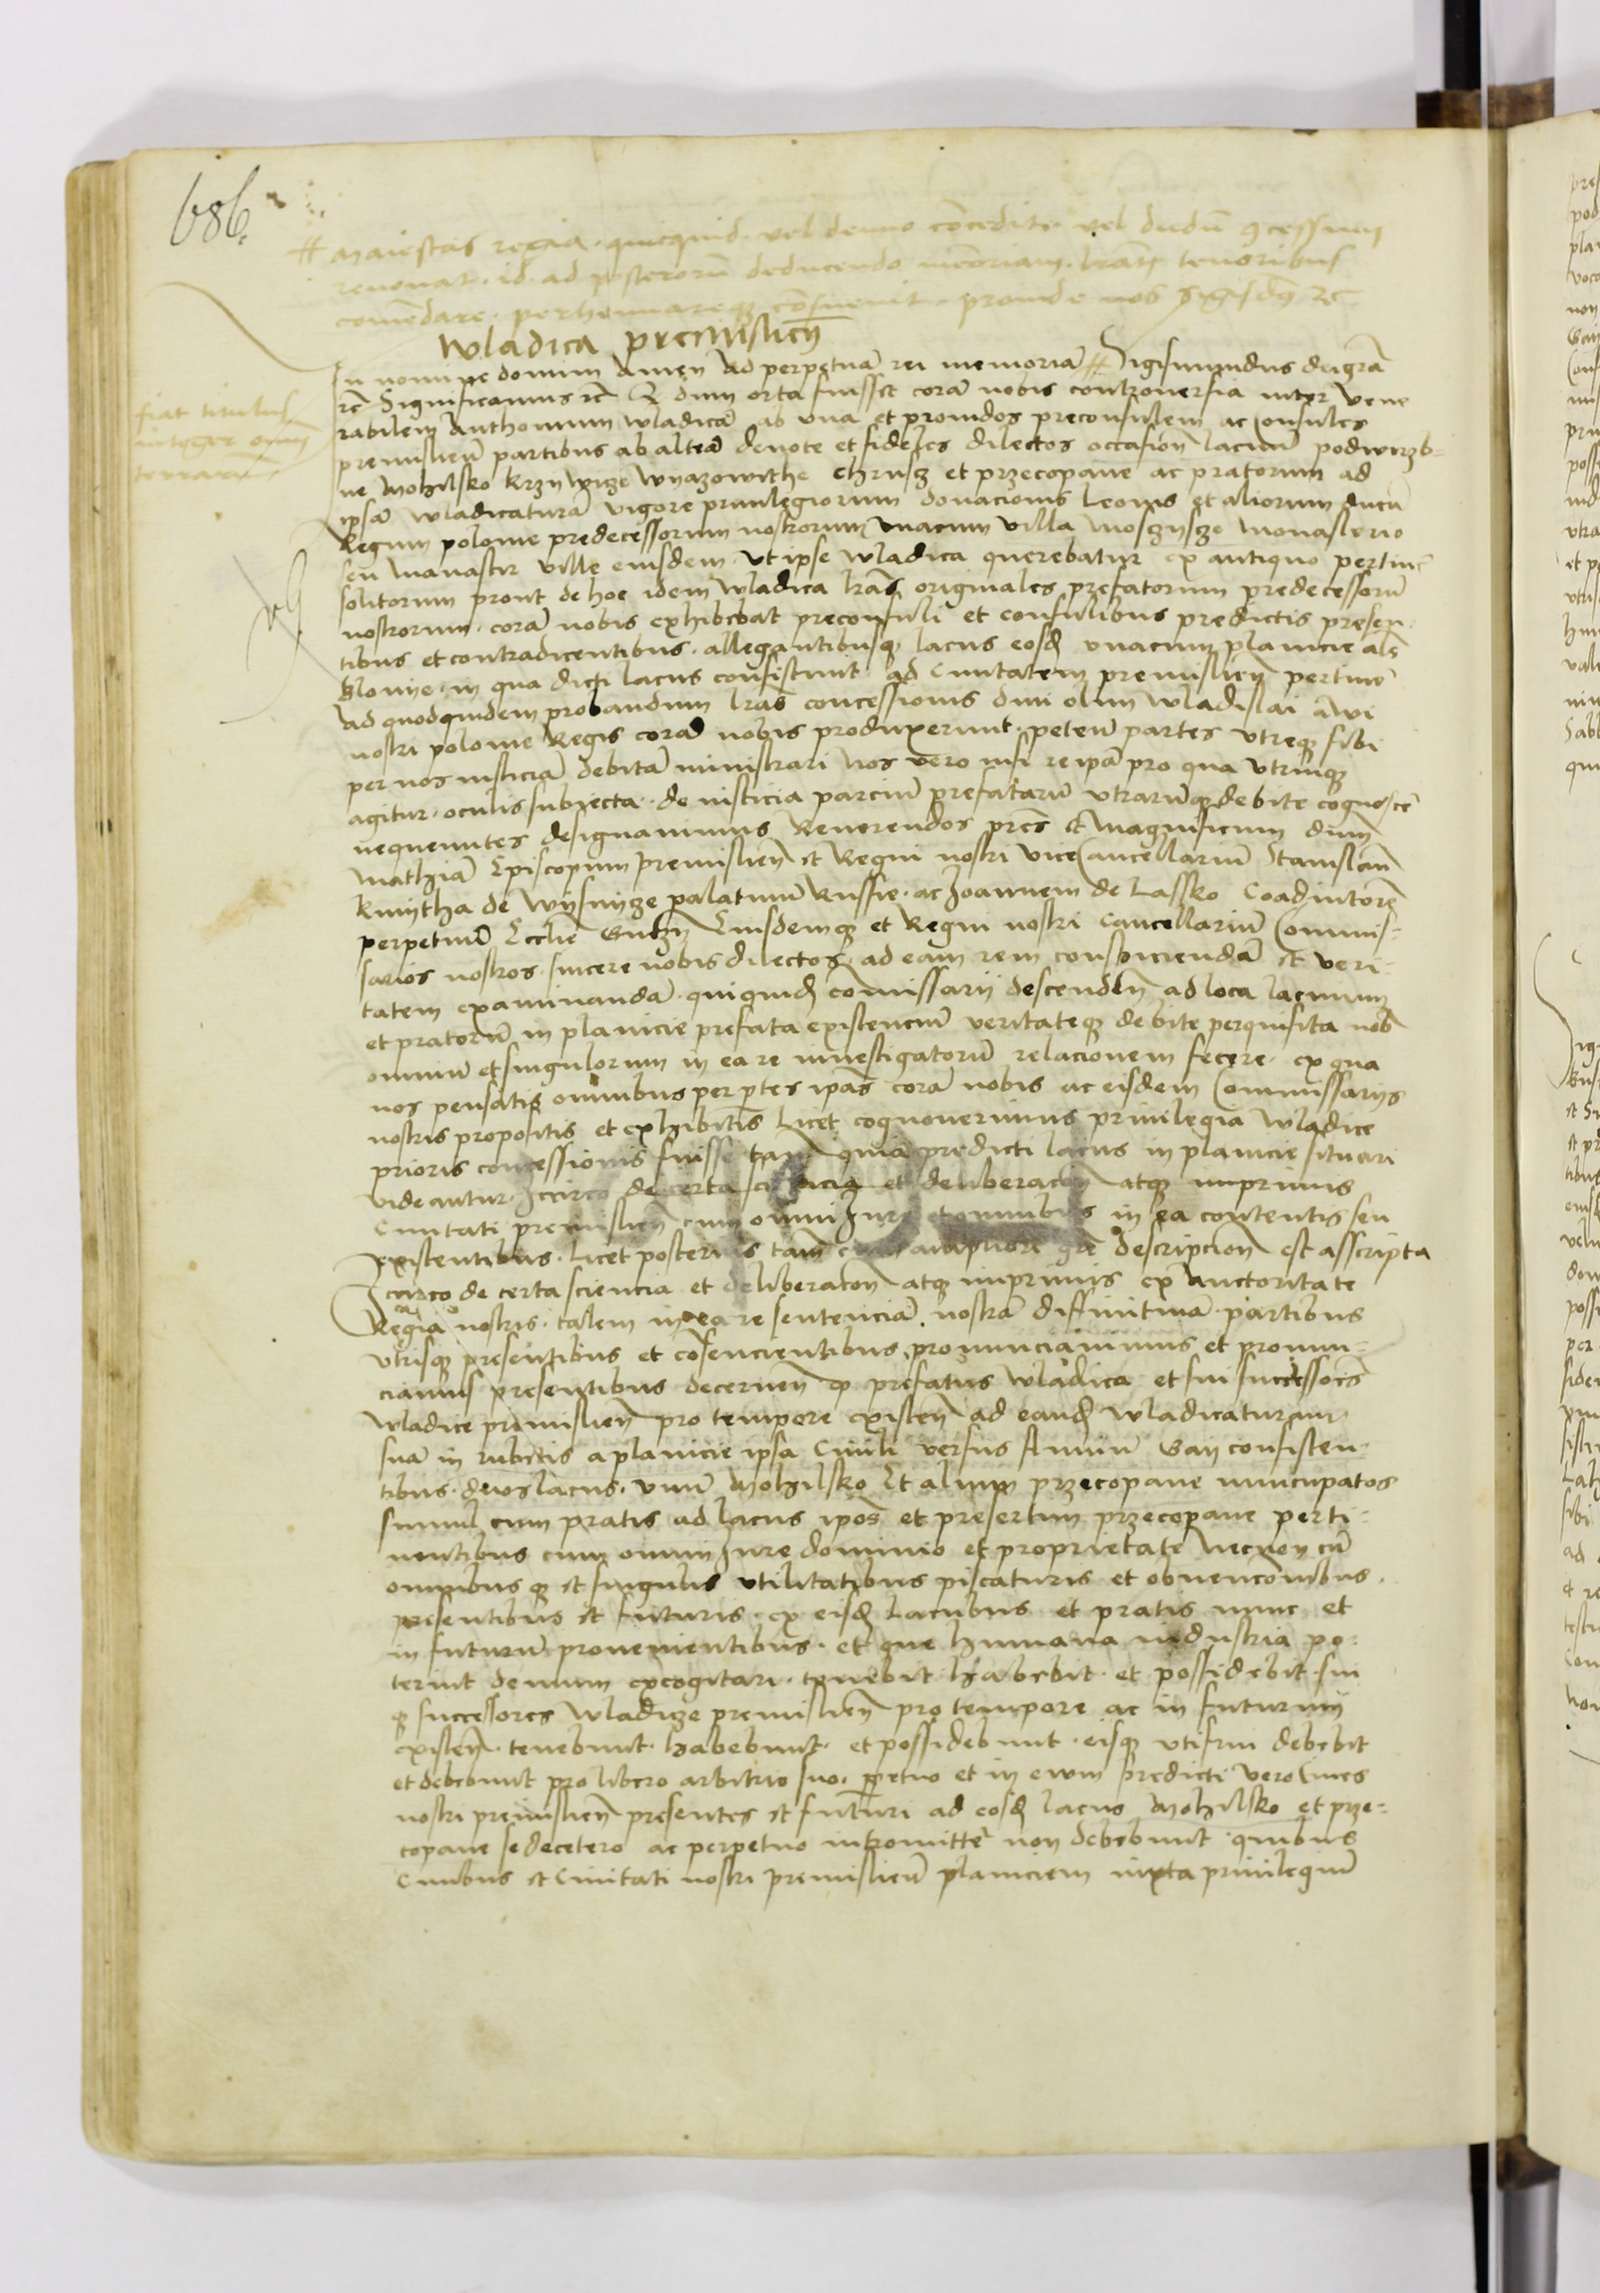 686
# Maiestas regia. quicquid. vel denuo concedit. vel dudū ꝯcessum
renovat. id. ad posterorū deducendo memoriam. lrarū tenoribus
comendare. perhennareqꝫ consuevit. proinde nos Sigisdꝰ ꝛc
Wladica premislien̄
fiat titulus
integer omīn
terrarū
In nomine domini Amen Ad perpetuā rei memoriā # Sigismundus dei grā
ꝛc Significamus ꝛc Q dum orta fuisset corā nobis controversia inter Vene
rabilem Anthonium Wladicā ab una et providos preconsulem ac Consules
premislien̄ partibus ab alterā devote et fideles dilectos occasion̄ lacuū podwirzb-
ne Mohilsko Krzywysze Wyazowithe Chrusz et przecopane ac pratorum ad
ipsā Wladicaturā vigore privilegiorum donacionis Leonis et aliorum ducū
Regum polonie predecessorum nostrorum unacum villa Moszysze Monasterio
seu Manastir ville eiusdem. Ut ipse Wladica querebatur ex antiquo pertinē
solitorum prout de hoc idem Wladica lrās originales prefatorum predecessorū
nostrorum. corā nobis exhibebat preconsuli et consulibus predictis presen
tibus et contradicentibus. allegantibusqꝫ lacus eosd̄ unacum planicie als̄
Blonye. in qua dicti lacus consistunt ad Civitatem premislien̄ pertinē
Ad quodquidem probandum lrās concessionis divi olim Wladislai Avi
nostri polonie Regis corā nobis produxerunt. peten̄ partes utreqꝫ sibi
per nos iusticiā debitā ministrari Nos vero nisi re ipā pro qua utrinqꝫ
agitur. oculis subiecta. de iusticia parciū prefatarū utrarūqꝫ debite cognoscē
nequeuntes designavimus Reverendos prēs et Magnificum dūm
Mathiā Episcopum premislien̄ et Regni nostri Vicecancellariū Stanislaū
Kmytha de Wysnycze palatinū Russie. ac Joannem de Lassko Coadiutorē
perpetuū Ecclie Gnezn̄ Eiusdemqꝫ et Regni nostri Cancellariū Commis-
sarios nostros. sincere nobis dilectos. ad eam rem conspiciendā et veri-
tatem examinandā. quiquid̄ comissarii descenden̄ ad loca lacuum
et pratorū in planicie prefata existenciū veritateqꝫ debite perquisita nob̄
omniū et singulorum in ea re investigatorū relacionem fecere. ex qua
nos pensatis omnibus per ptes ipās corā nobis ac eisdem Commissariis
nostris propositis et exhibitis Licet cognoverimus privilegia Wladice
prioris concessionis fuisse tamē quia predicti lacus in planicie situari
videantur. Iccirco de certa sciencia et deliberacion̄ atqꝫ imprimis
Civitati premislien̄ cum omni Jure et omnibus in ea contentis seu
existentibus. Licet posterius tamē cum ampliori grē descripcion̄ est asscripta
Iccirco de certa sciencia et deliberaton̄ atqꝫ imprimis ex Auctoritate
Regia nostris. talem in ea re sentenciā. nostrā diffinitivā. partibus
utrisqꝫ presentibus et cōsencientibus pronunciavimus et pronun-
ciamus presentibus decernen̄ ꝙ prefatus Wladica et sui successorēs
Wladice premislien̄ pro tempore existen̄ ad eand̄ Wladicaturam
suā in rubetis a planicie ipsa Civili versus fluviū San consisten-
tibus. duos lacus. unū Mohilsko Et alium przecopane nuncupatos
simul cum pratis ad lacus ipōs et presertim przecopane perti-
nentibus cum omni Jure dominio et proprietate Necnon cū
omnibusqꝫ et singulis utilitatibus piscaturis et obvencōnibus.
presentibus et futuris. ex eisd̄ Lacubus et pratis nunc et
in futurū provenientibus. et que humana industria po-
terint demum excogitari. tenebit habebit. et possidebit. sui
qꝫ successores Wladicze premislien̄ pro tempore ac in futurum
existen̄. tenebunt. habebunt. et possidebunt. eisqꝫ utifrui debebit
et debebunt pro libero arbitrio suo. ꝑpetuo et in evum predicti vero Cives
nostri premislien̄ presentes et futuri ad eosd̄ lacus Mohilsko et prze-
copane se decetero ac perpetuo intromitterē non debebunt. quibus
Civibus et Civitati nostri premislien̄ planiciem iuxta privilegiū